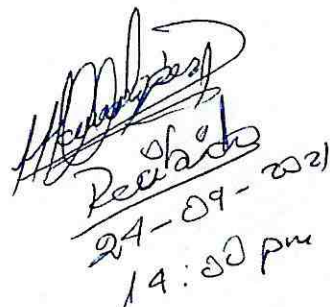 Recibido
24-09-2021
14:00 pm